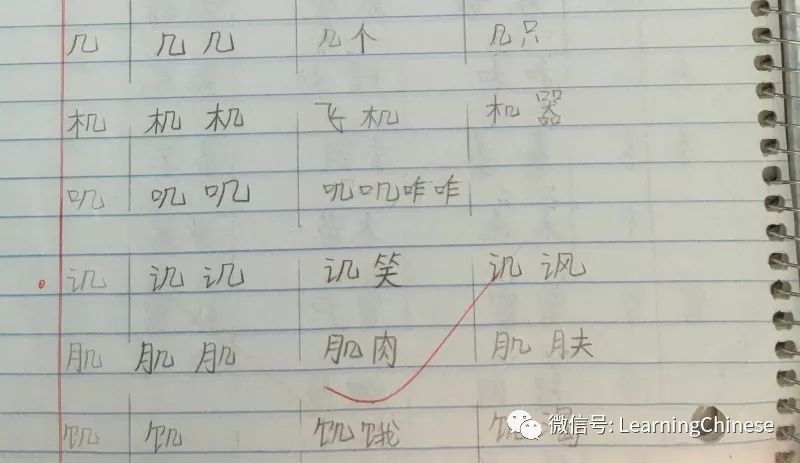 几 几 几 几个 几只
机 机 机 飞机 机器
叽 叽 叽 叽叽咋咋
讥 讥 讥 讥笑 讥讽
肌 肌 肌 肌肉 肌肤
饥 饥 饥饿
微信号: LearningChinese